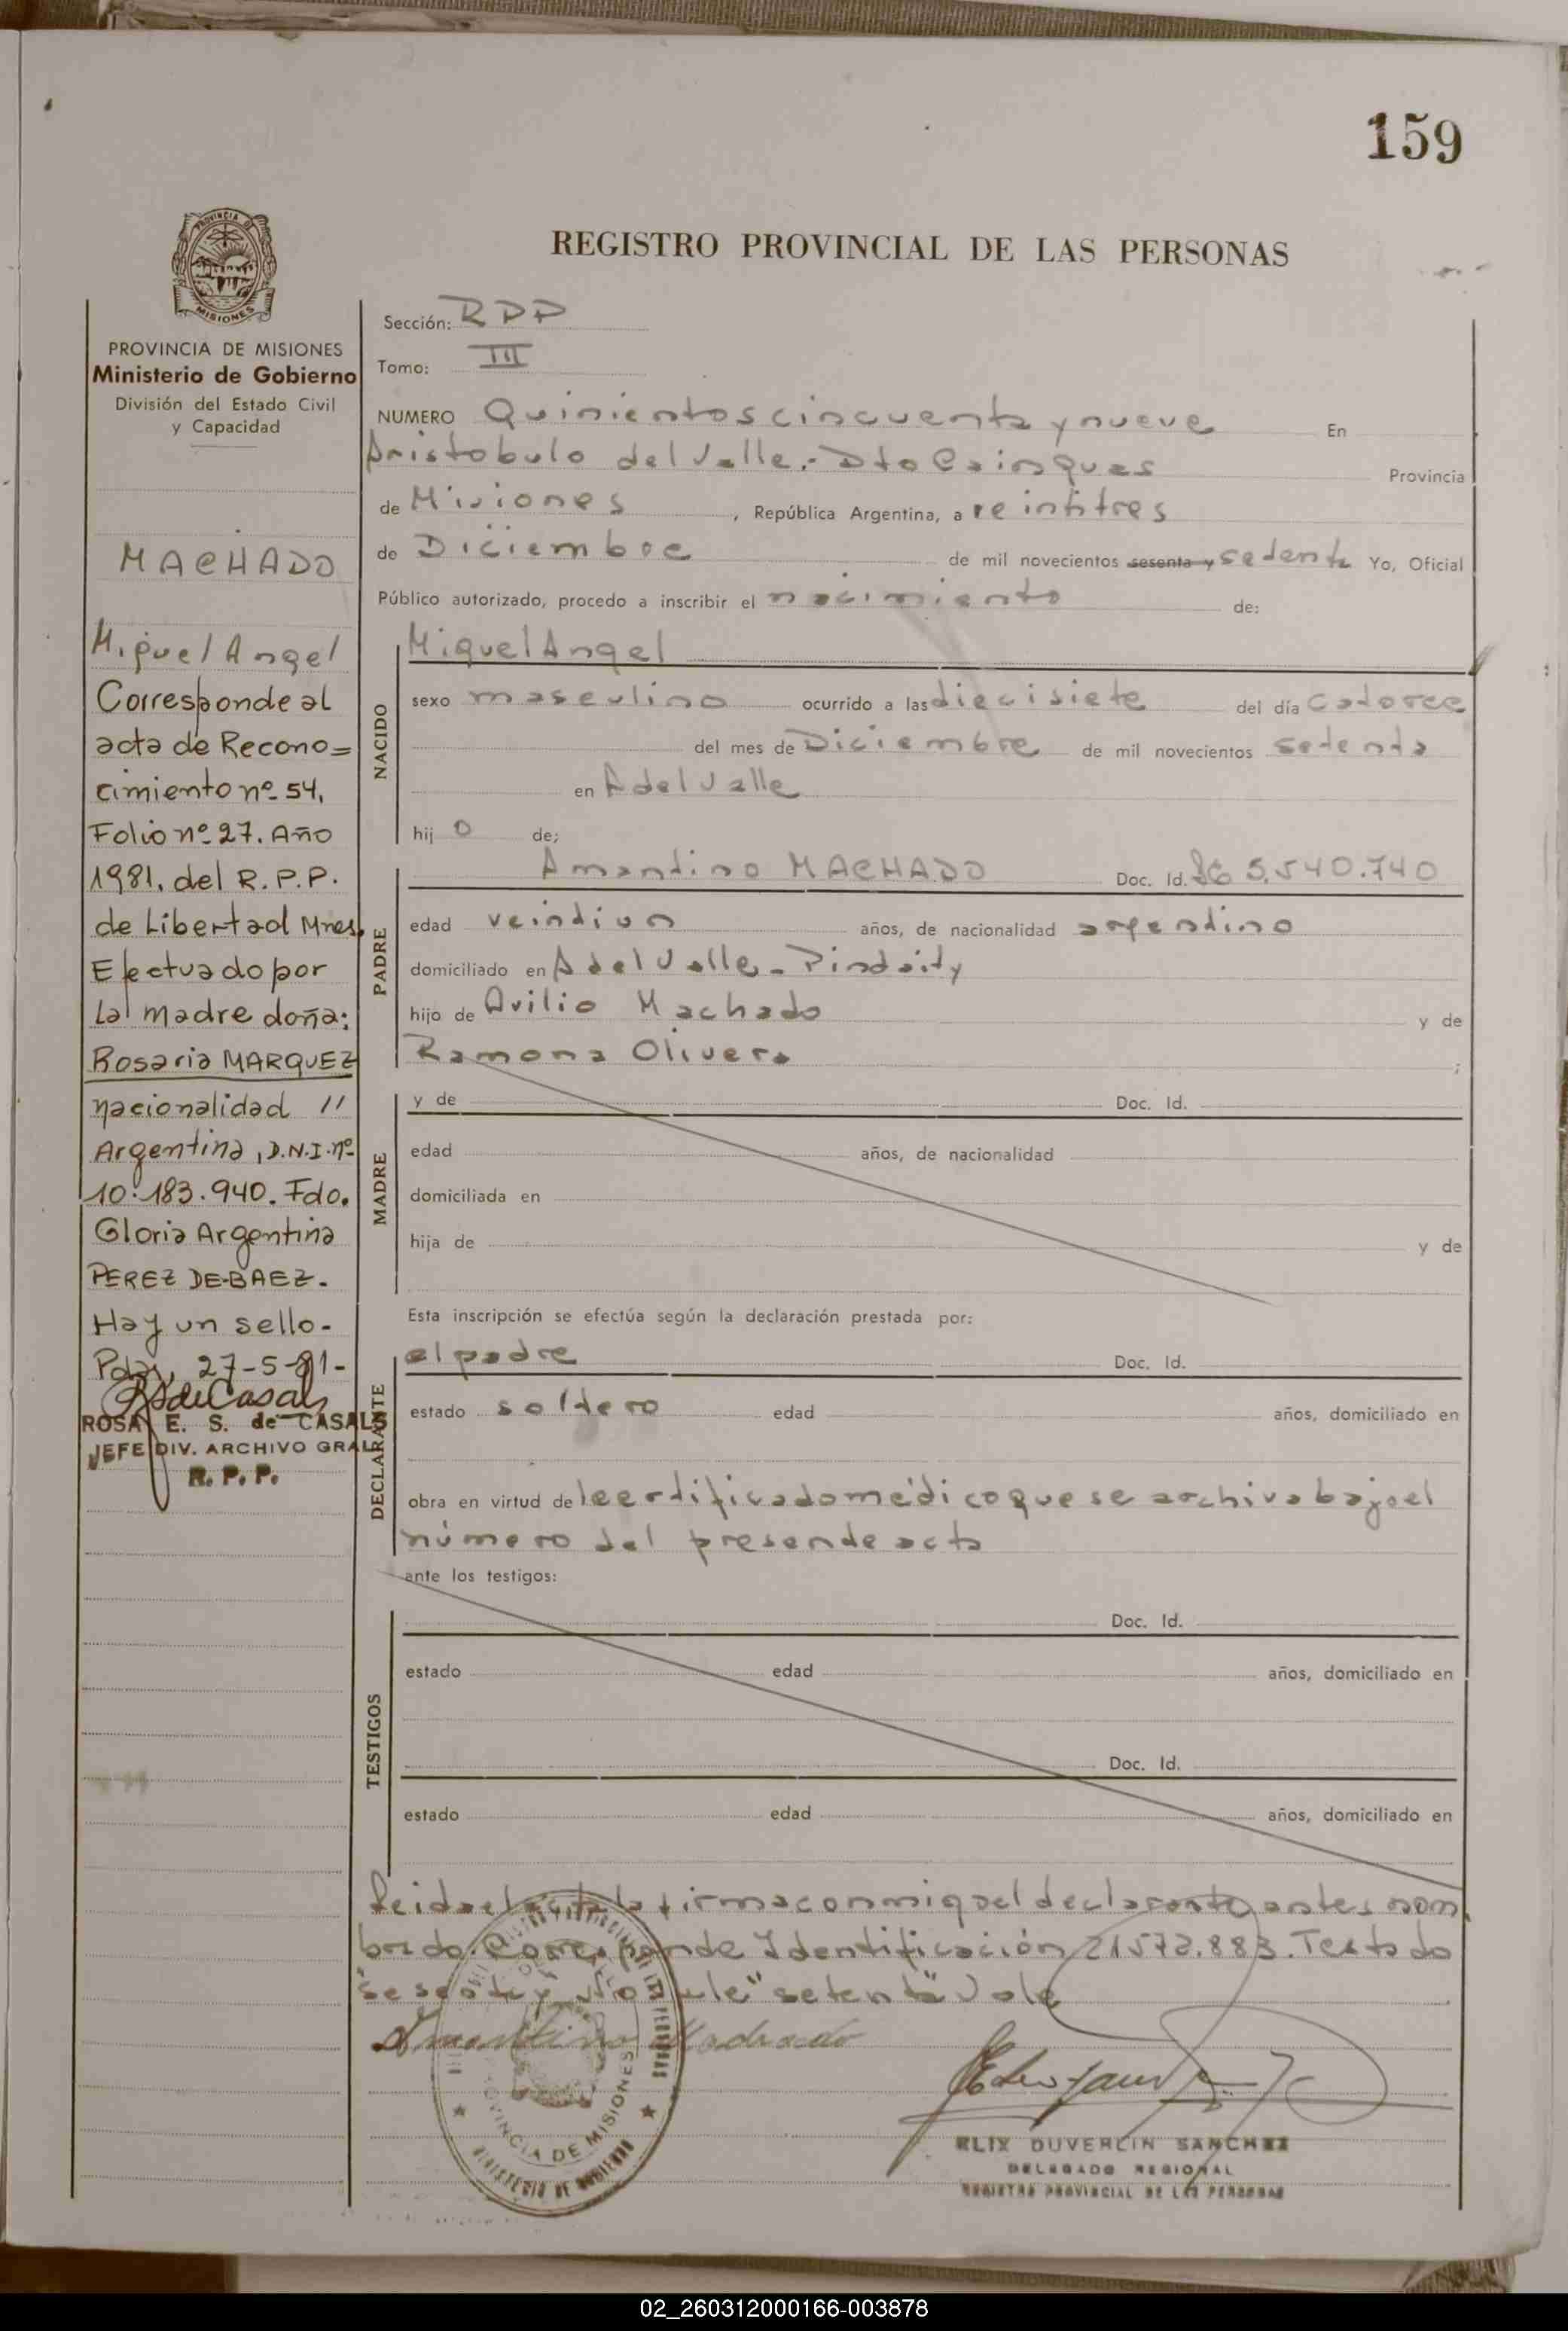 159
PROVINCIA DE
MISIONES
REGISTRO PROVINCIAL DE LAS PERSONAS
PROVINCIA DE MISIONES
Ministerio de Gobierno
División del Estado Civil
y Capacidad
MACHADO
Miguel Angel
Corresponde al
acta de Recono=
cimiento nº 54,
Folio nº 27. Año
1981. del R.P.P.
de Libertad Mnes.
Efectuado por
La madre doña:
Rosaria MARQUEZ
nacionalidad //
Argentina, D.N.I. nº
10.183.940. Fdo.
Gloria Argentina
PEREZ DE BAEZ.
Hay un sello-
Pdas, 27-5-81-
ROSA E. S. de CASALS
JEFE DIV. ARCHIVO GRAL
R. P. P.
Sección: RPP
Tomo: III
NUMERO Quinientos cincuenta y nueve En
Aristobulo del Valle.- Dto Cainguas Provincia
de Misiones, República Argentina, a veintitres
de Diciembre de mil novecientos sesenta y setenta Yo, Oficial
Público autorizado, procedo a inscribir el nacimiento de:
NACIDO
Miguel Angel
sexo masculino ocurrido a las diecisiete del día catorce
del mes de Diciembre de mil novecientos setenta
en A del Valle
hij o de;
PADRE
Amantino MACHADO Doc. Id. 8.540.740
edad veintiun años, de nacionalidad argentino
domiciliado en A del Valle - Pindaity
hijo de Avilio Machado y de
Ramona Olivera ;
MADRE
y de Doc. Id.
edad años, de nacionalidad
domiciliada en
hija de y de
Esta inscripción se efectúa según la declaración prestada por:
DECLARANTE
el padre Doc. Id.
estado soltero edad años, domiciliado en
obra en virtud del certificado médico que se archiva bajo el
número del presente acta
ante los testigos:
TESTIGOS
Doc. Id.
estado edad años, domiciliado en
Doc. Id.
estado edad años, domiciliado en
Leida el acta la firma conmigo el declarante antes nom
brado. Corresponde Identificación 21572.883. Testado
"sesenta y" No Vale "setenta" Vale
Amantino Machado
PROVINCIA DE MISIONES
MINISTERIO DE GOBIERNO
ELIX DUVERLIN SANCHEZ
DELEGADO REGIONAL
REGISTRO PROVINCIAL DE LAS PERSONAS
02_260312000166-003878